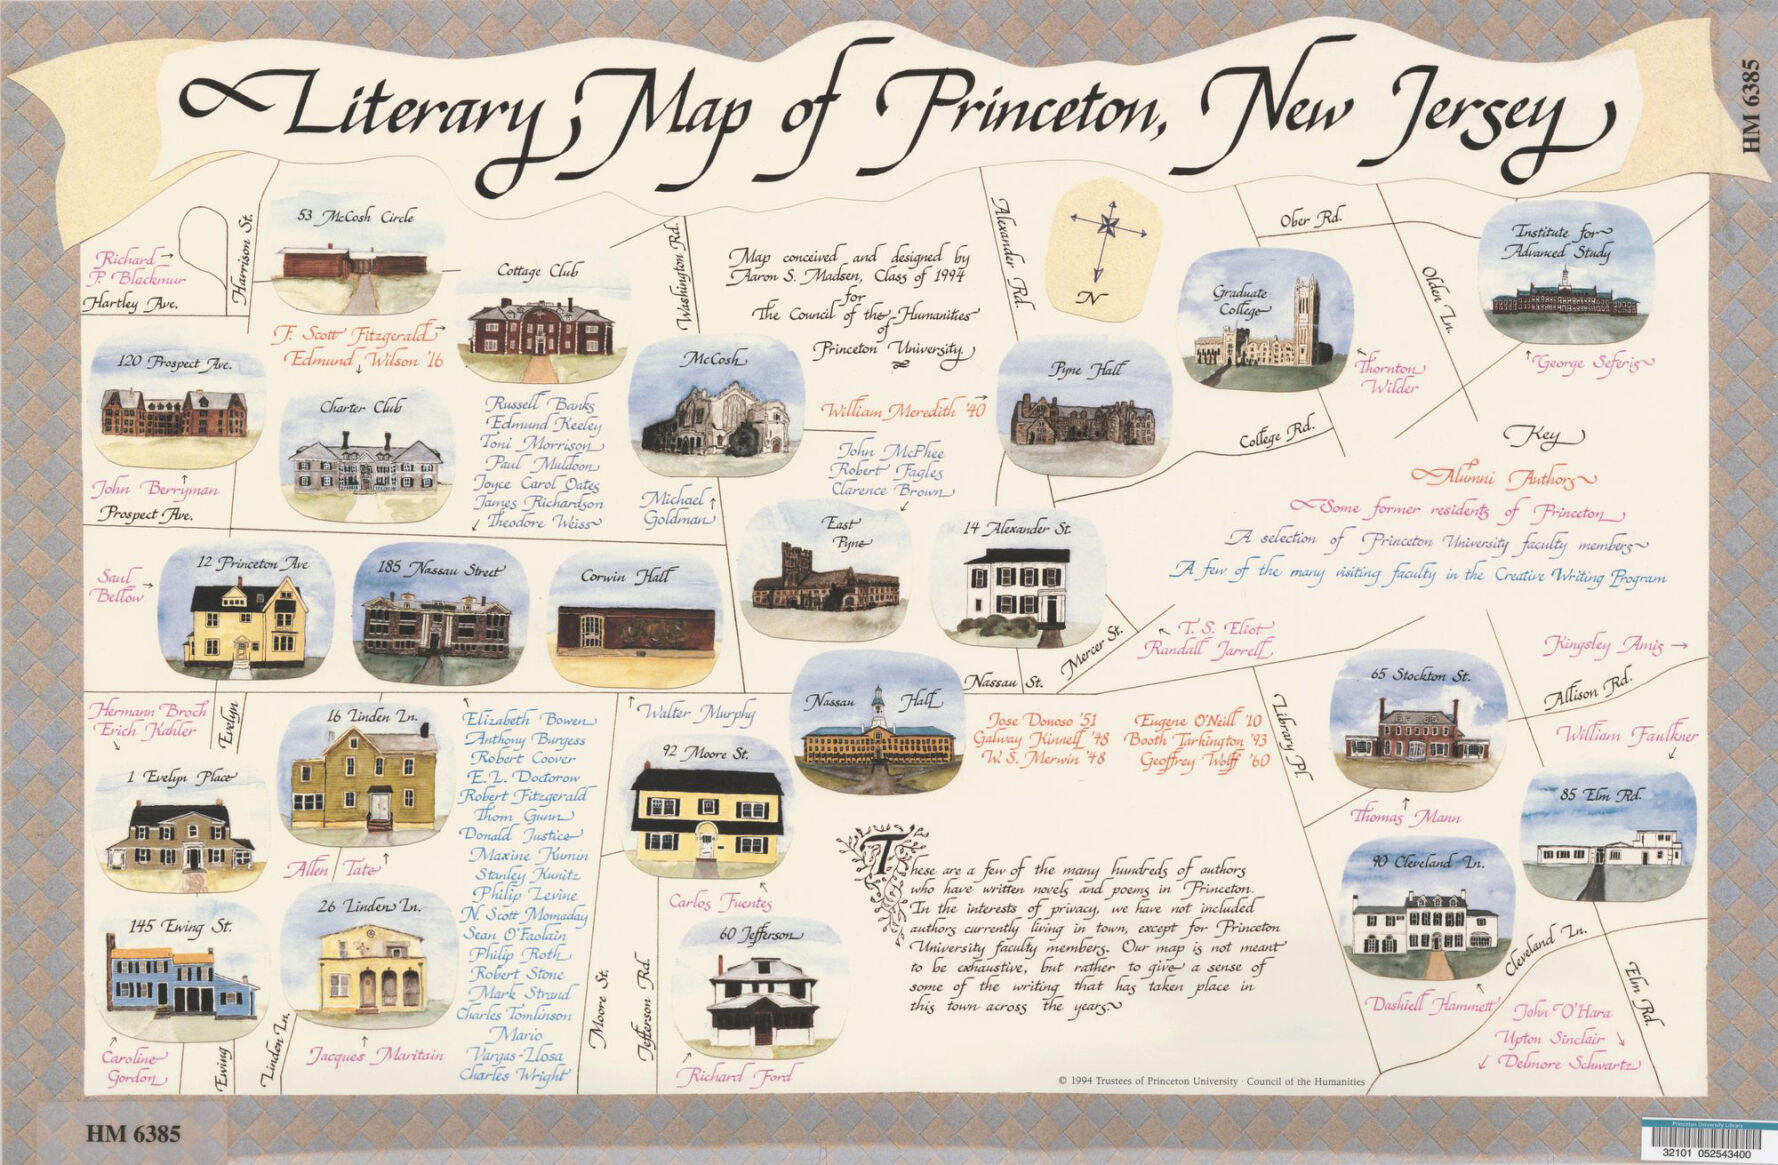 Literary Map of Princeton, New Jersey
HM 6385
53 McCosh Circle
Richard
P. Blackmur
Hartley Ave.
Harrison St.
Cottage Club
F. Scott Fitzgerald
Edmund Wilson '16
Washington Rd.
Map conceived and designed by
Aaron S. Madsen, Class of 1994
for
The Council of the Humanities
of
Princeton University
Alexander Rd.
N
Ober Rd.
Olden Ln.
Graduate
College
Institute for
Advanced Study
Thornton
Wilder
George Seferis
120 Prospect Ave.
John Berryman
Prospect Ave.
Charter Club
Russell Banks
Edmund Keeley
Toni Morrison
Paul Muldoon
Joyce Carol Oates
James Richardson
Theodore Weiss
McCosh
Michael
Goldman
William Meredith '40
John McPhee
Robert Fagles
Clarence Brown
Pyne Hall
College Rd.
Key
Alumni Authors
Some former residents of Princeton
A selection of Princeton University faculty members
A few of the many visiting faculty in the Creative Writing Program
East
Pyne
14 Alexander St.
Saul
Bellow
12 Princeton Ave
185 Nassau Street
Corwin Hall
Mercer St.
T. S. Eliot
Randall Jarrell
Nassau St.
Kingsley Amis
Allison Rd.
65 Stockton St.
William Faulkner
Hermann Broch
Erich Kahler
Evelyn
16 Linden Ln.
Elizabeth Bowen
Anthony Burgess
Robert Coover
E. L. Doctorow
Robert Fitzgerald
Thom Gunn
Donald Justice
Maxine Kumin
Stanley Kunitz
Philip Levine
N. Scott Momaday
Sean O'Faolain
Philip Roth
Robert Stone
Mark Strand
Charles Tomlinson
Mario
Vargas-Llosa
Charles Wright
Walter Murphy
92 Moore St.
Nassau Hall
Jose Donoso '51
Galway Kinnell '48
W. S. Merwin '48
Eugene O'Neill '10
Booth Tarkington '93
Geoffrey Wolff '60
Library Pl.
1 Evelyn Place
Allen Tate
Thomas Mann
85 Elm Rd.
90 Cleveland Ln.
Carlos Fuentes
These are a few of the many hundreds of authors
who have written novels and poems in Princeton.
In the interests of privacy, we have not included
authors currently living in town, except for Princeton
University faculty members. Our map is not meant
to be exhaustive, but rather to give a sense of
some of the writing that has taken place in
this town across the years.
145 Ewing St.
26 Linden Ln.
60 Jefferson
Cleveland Ln.
Elm Rd.
Dashiell Hammett
John O'Hara
Upton Sinclair
Delmore Schwartz
Caroline
Gordon
Ewing
Linden Ln.
Jacques Maritain
Moore St.
Jefferson Rd.
Richard Ford
© 1994 Trustees of Princeton University · Council of the Humanities
HM 6385
Princeton University Library
32101 052543400